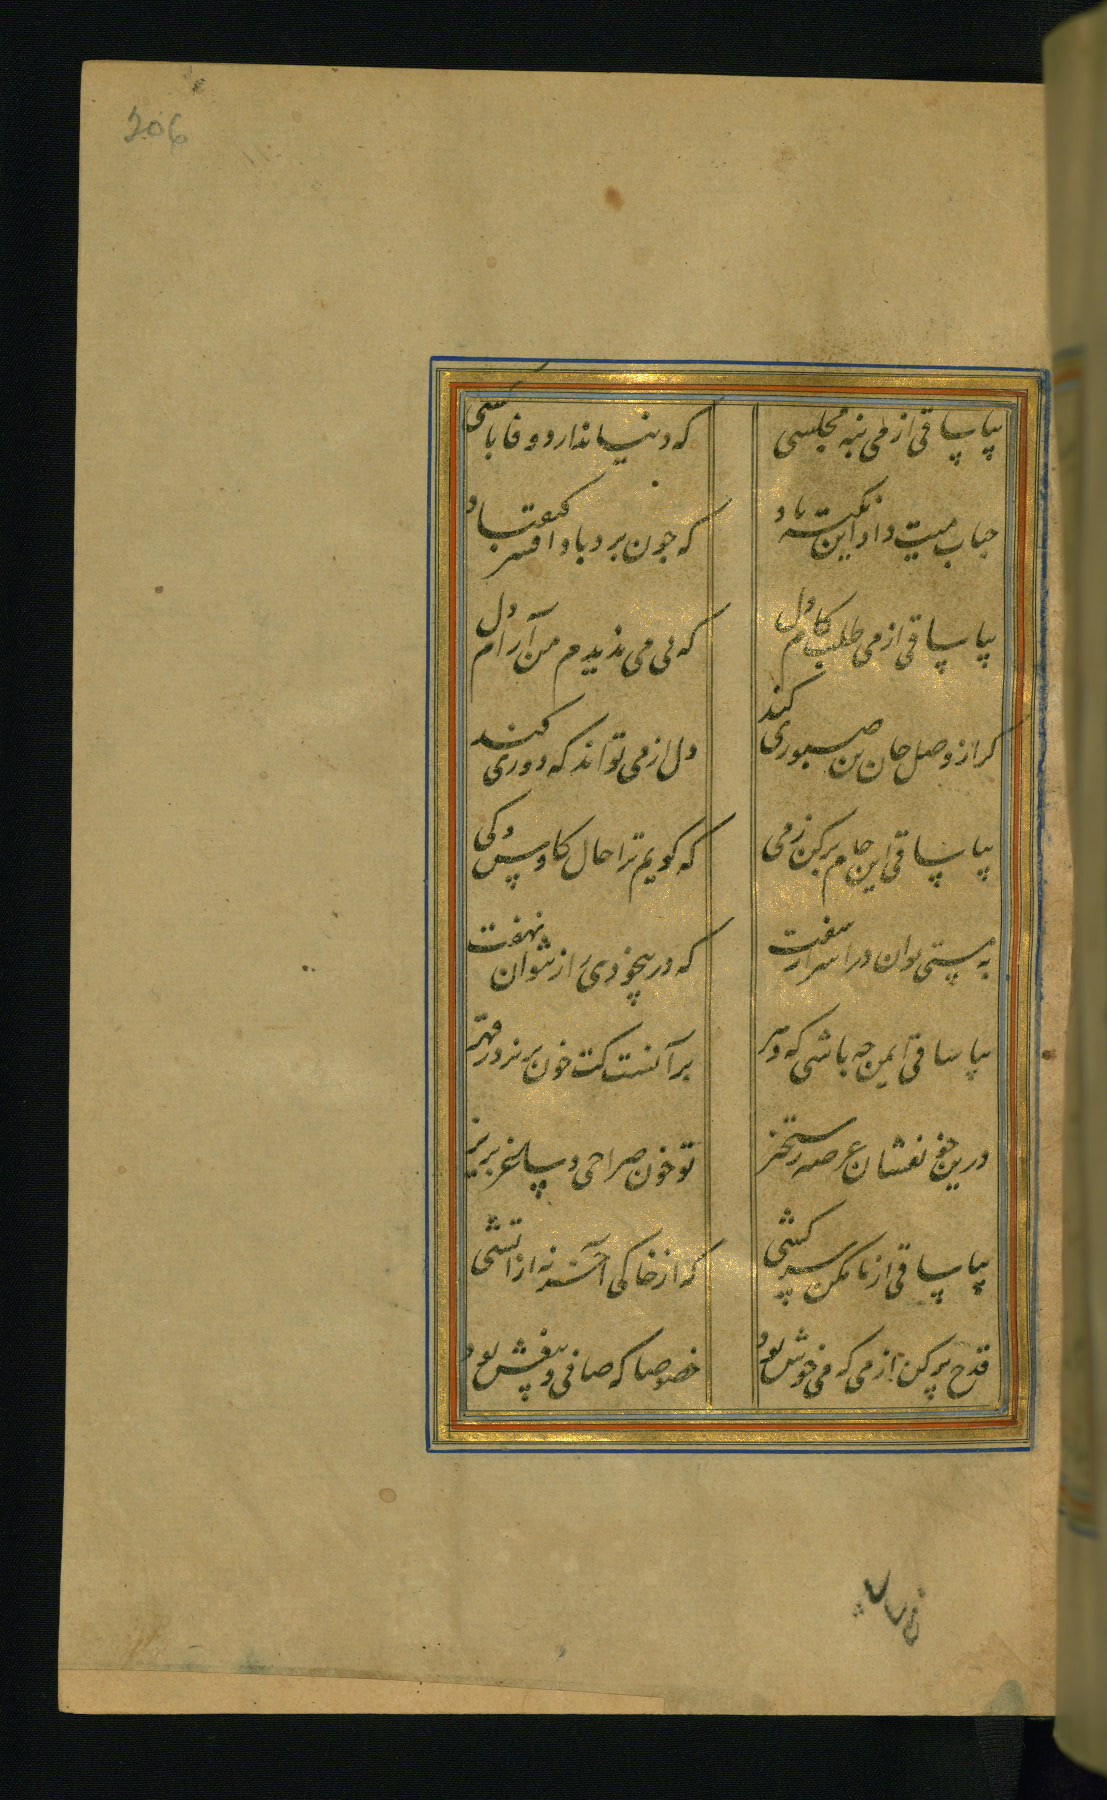 206
بیا ساقی از می بنه مجلسی که دنیا ندارد وفا با کسی
حباب میت داد این نکته یاد که چون برد باد افسر کیقباد
بیا ساقی از می طلب کام دل که بی می ندیدم من آرام دل
گر از وصل جان تن صبوری کند دل از می تواند که دوری کند
بیا ساقی این جام پر کن ز می که گویم ترا حال کاوس و کی
به مستی توان در اسرار سفت که در بیخودی راز نتوان نهفت
بیا ساقی ایمن چه باشی که دهر بر آنست کت خون بریزد به قهر
درین خون فشان عرصه رستخیز تو خون صراحی و ساغر بریز
بیا ساقی از ما مکن سرکشی که از خاکی آخر نه از آتشی
قدح پر کن از می که می خوش بود خصوصا که صافی و بیغش بود